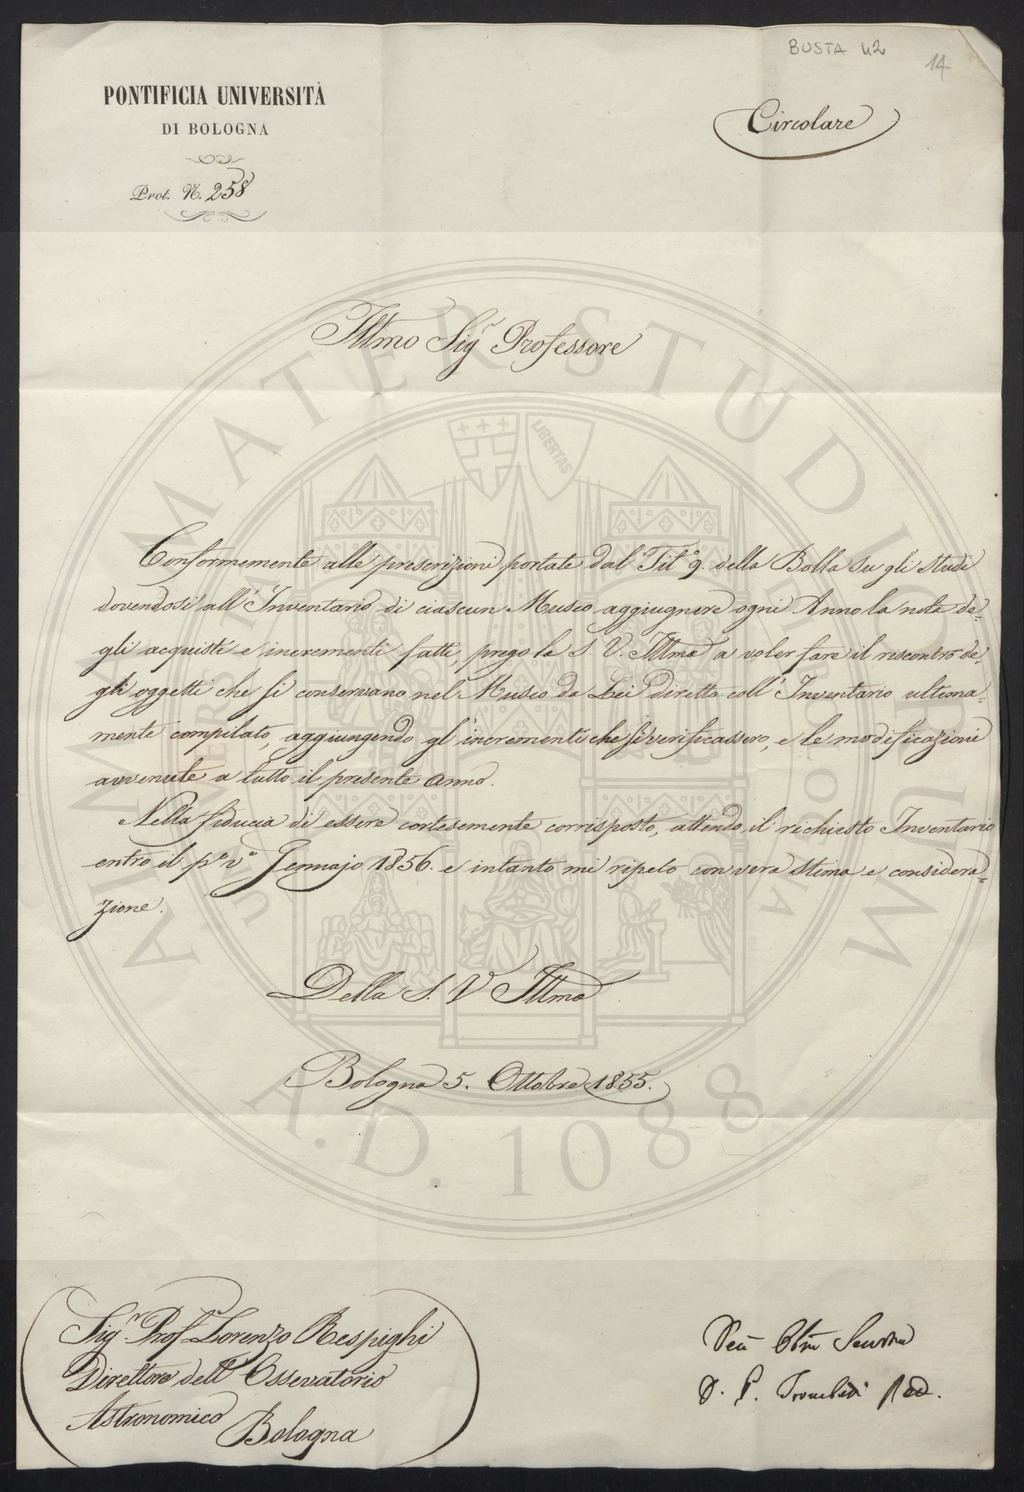 BUSTA 42
14
PONTIFICIA UNIVERSITÀ
DI BOLOGNA
Prot. N. 258
Circolare
Illmo Sigr Professore
Conformemente alle prescrizioni portate dal Tit° 9. della Bolla su gli Studi
dovendosi all'Inventario di ciascun Museo aggiugnere ogni Anno la nota de=
gli acquisti e incrementi fatti, prego la S. V. Illma a voler fare il riscontro de=
gli oggetti che si conservano nel Museo da Lei diretto coll'Inventario ultima=
mente compilato, aggiungendo gl'incrementi che si verificassero, e le modificazioni
avvenute a tutto il presente anno.
Nella fiducia di essere cortesemente corrisposto, attendo il richiesto Inventario
entro il p.° v.° Gennajo 1856. e intanto mi ripeto con vera stima e considera=
zione.
Della S. V Illma
Bologna 5. Ottobre 1855.
Sigr Prof Lorenzo Respighi
Direttore dell'Ossevatorio
Astronomico
Bologna
D. P. Trombetti
ALMA MATER STUDIORUM
A.D. 1088
LIBERTAS